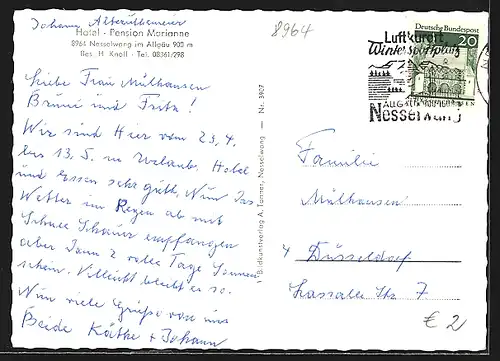 Johann
Hotel - Pension Marianne
8964 Nesselwang im Allgäu 900 m
Bes. H. Knoll · Tel. 08361/298
8964
Deutsche Bundespost
20
Luftkurort
Wintersportplatz
Nesselwang
Liebe Frau Mülhausen
Bruni und Fritz!
Wir sind Hier vom 23.4.
bis 13.5. in Urlaub. Hotel
und Essen sehr gutt. Nun das
Wetter im Regen ab mit
Schnee Schauer empfangen
aber Dann 2 volle Tage Sonnen
schein. Villeicht bleibt es so.
Nun viele Grüße von uns
Beide Käthe + Johann
Bildkunstverlag A. Tanner, Nesselwang — Nr. 3907
Familie
Mülhausen
4 Düsseldorf
Lassalle Str. 7
€ 2